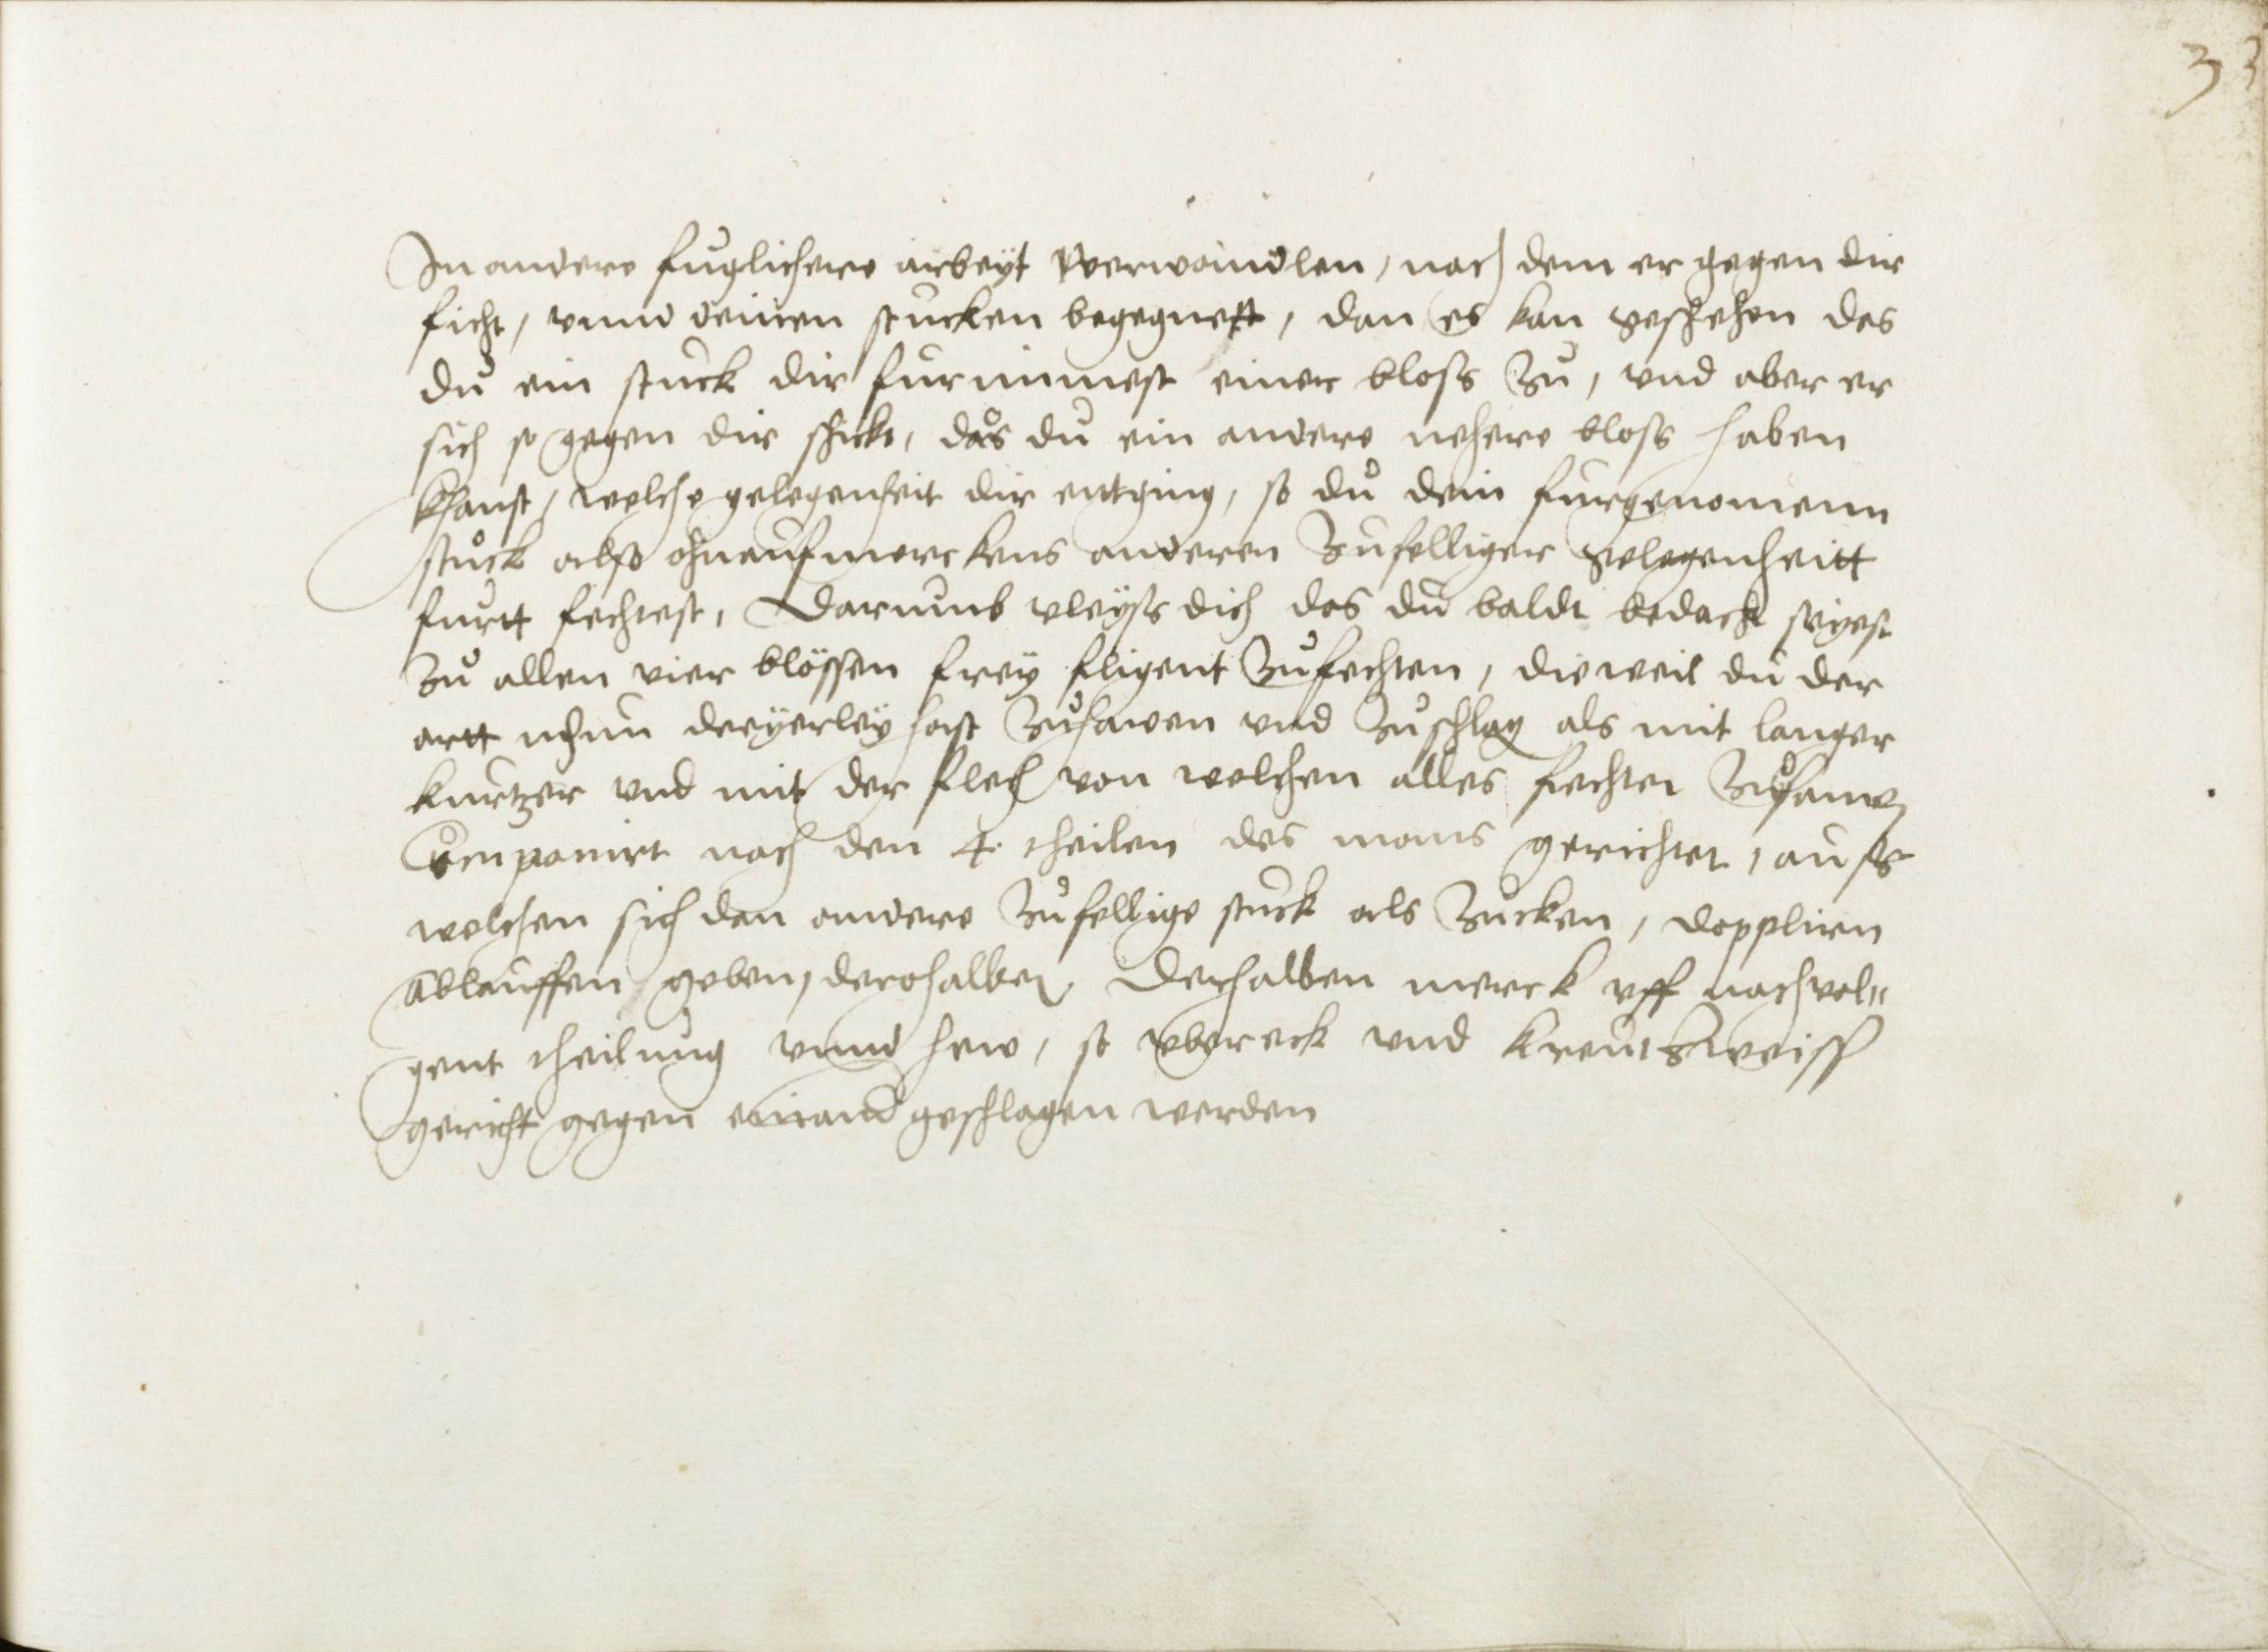 33
In andere fuglichere arbeÿt verwandlen, nach dem er gegen dir
ficht, vnnd deinen stucken begegnett, dan es kan geschehen das
du ein stuck dir furnimmest einer bloss zu, vnd aber er
sich so gegen dir schickt, das du ein andere nehere bloss haben
khanst, welche gelegenheit dir entging, so du dein furgenomenn
stuck also ohn aufmerckens anderen zufelliger gelegenheitt
furtt fechtest, Darumb vleÿss dich das du baldt bedacht seÿest
zu allen vier blössen freÿ fligent zufechten, die weil du der
artt nhun dreÿerleÿ hast zuhawen vnd zuschlag als mit langer
kurtzer vnd mit der flech von welchen alles fechten zusamen
Componirt nach den 4. theilen des mans gerichtet, auss
welchen sich den andere zufellige stuck als zucken, dopplirn
ablauffen geben, derohalben, Derhalben merck vff nachvol"
gent theilung vnnd hew, so vbereck vnd kreutzweiss
gericht gegen einand geschlagen werden